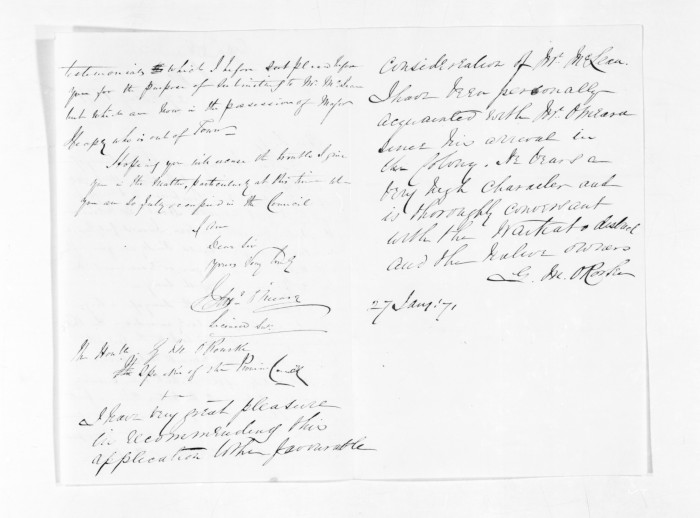 testimonials which I before sent
you for the purpose of submitting to Mr McLean
but which are now in the possession of Major
Heaphy who is out of Town
Hoping you will excuse the trouble I give
you in the matter, particularly at this time when
you are so fully occupied in the Council
I am
Dear Sir
Yours very truly
O'Meara
Licensed Sur.
The Honble G. M. O'Rorke
the Speaker of the Provin Council
I have very great pleasure
in recommending this
application to the favourable
consideration of Mr McLean.
I have been personally
acquainted with Mr. O'Meara
since his arrival in
the Colony. He bears a
very high character and
is thoroughly conversant
with the Waikato district
and the native owners
G. M. O'Rorke
27 Jany. 71